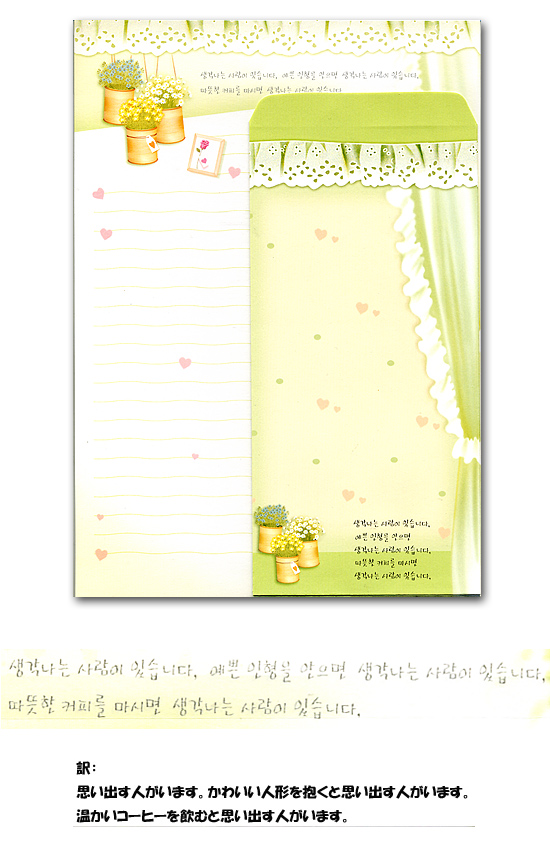 생각나는 사람이 있습니다. 예쁜 인형을 안으면 생각나는 사람이 있습니다.
따뜻한 커피를 마시면 생각나는 사람이 있습니다.
생각나는 사람이 있습니다.
예쁜 인형을 안으면
생각나는 사람이 있습니다.
따뜻한 커피를 마시면
생각나는 사람이 있습니다.
생각나는 사람이 있습니다. 예쁜 인형을 안으면 생각나는 사람이 있습니다.
따뜻한 커피를 마시면 생각나는 사람이 있습니다.
訳：
思い出す人がいます。かわいい人形を抱くと思い出す人がいます。
温かいコーヒーを飲むと思い出す人がいます。